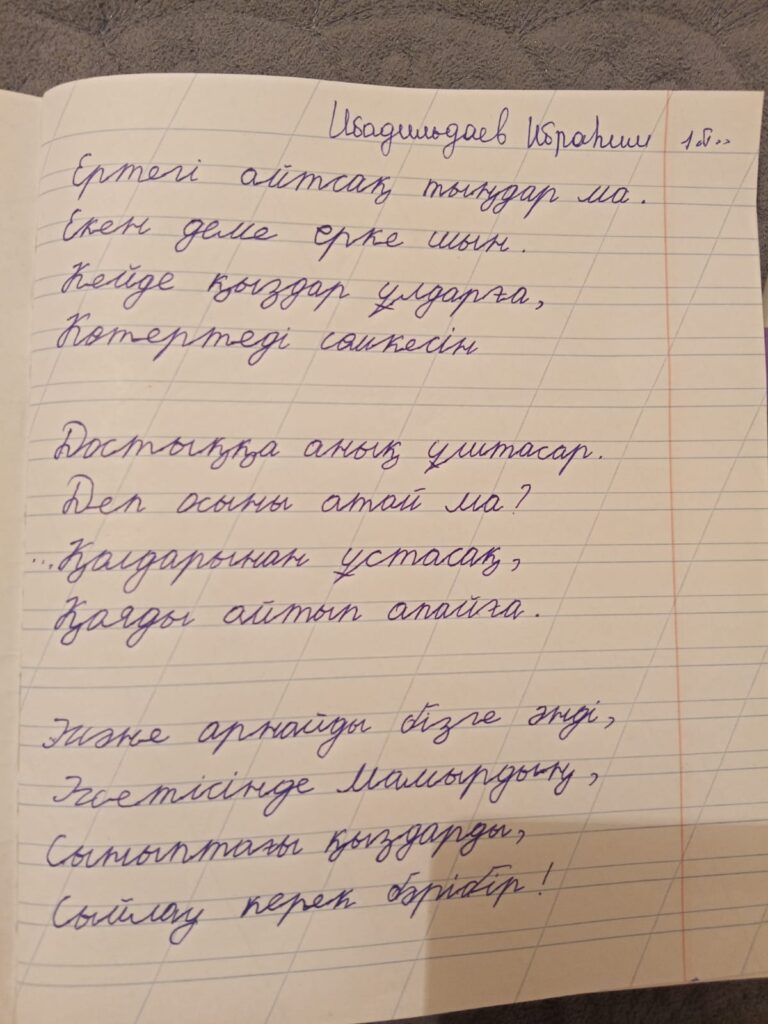 Ибадильдаев Ибраһим 1 "Ә"
Ертегі айтсақ тыңдар ма.
Екен деме ерке шын.
Кейде қыздар ұлдарға,
Көтертеді сөмкесін
Достыққа анық ұштасар.
Деп осыны атай ма?
...Қолдарынан ұстасақ,
Қояды айтып апайға.
Және арнайды бізге әнді,
Жетісінде Мамырдың,
Сыныптағы қыздарды,
Сыйлау керек бәрібір!